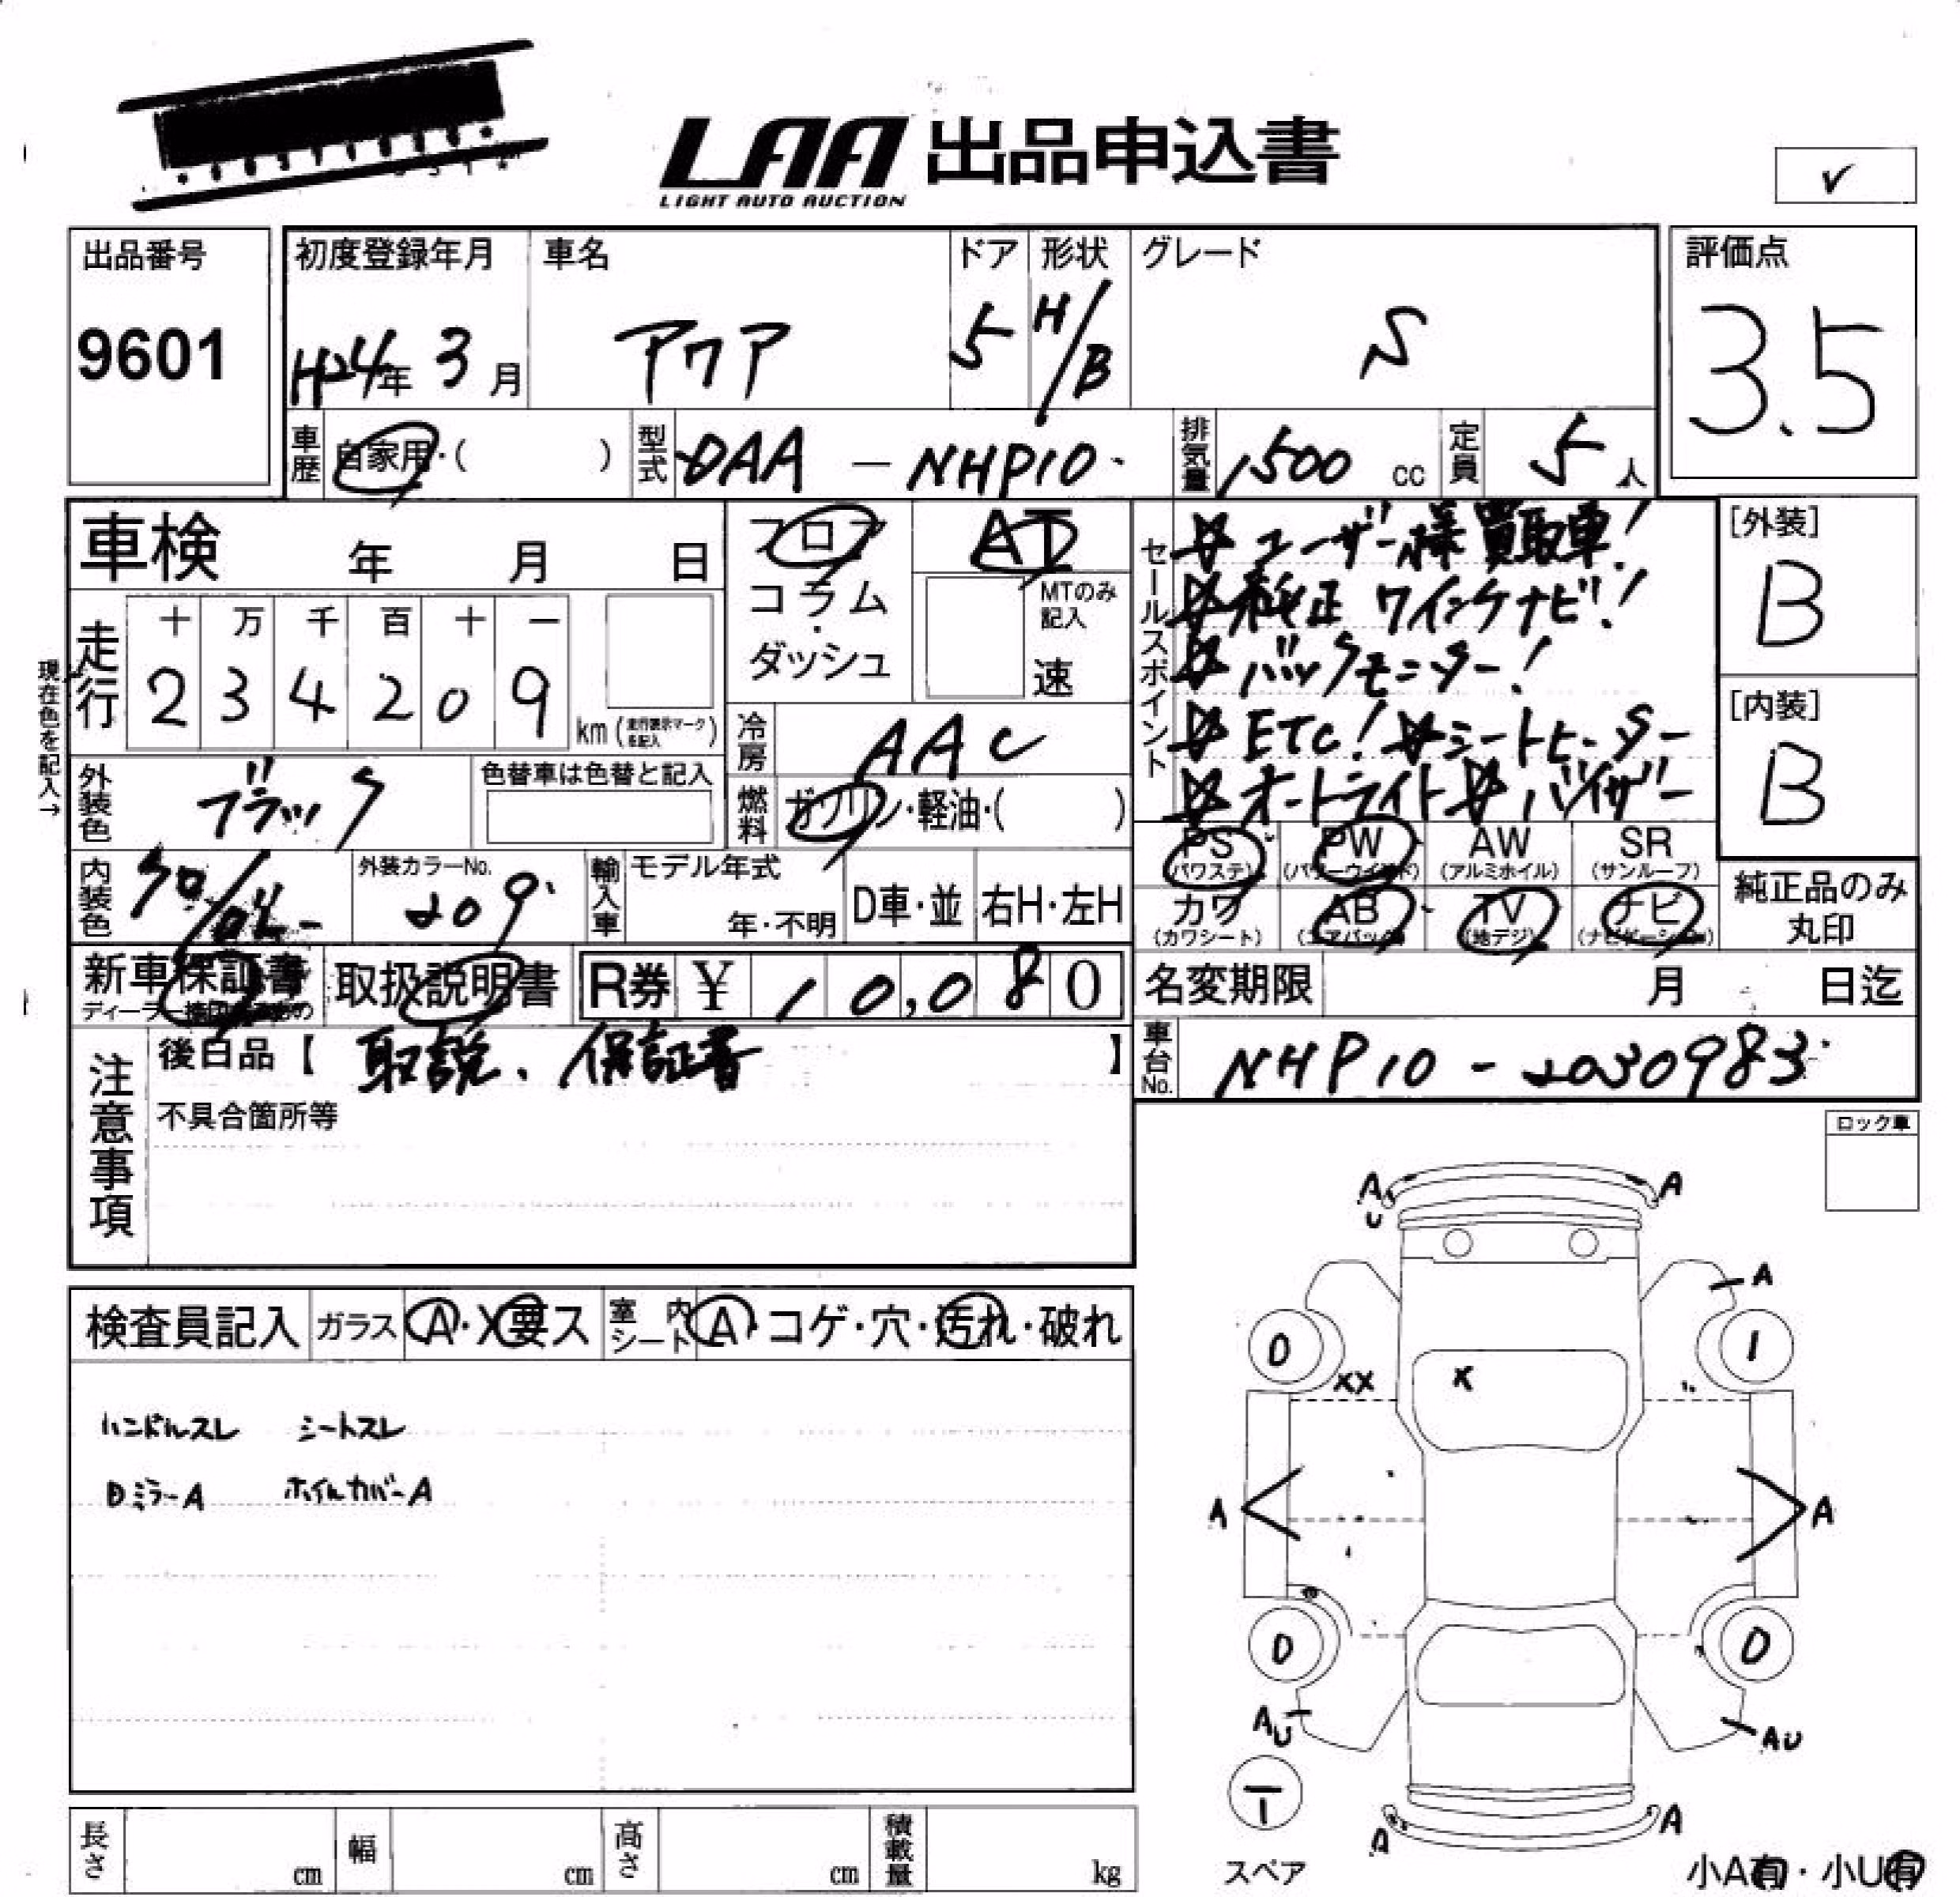 LAA 出品申込書
LIGHT AUTO AUCTION
✓
出品番号
9601
初度登録年月
H24年 3月
車名
アクア
ドア
5
形状
H/B
グレード
S
評価点
3.5
車歴
自家用・( )
型式
DAA - NHP10
排気量
1500 cc
定員
5 人
車検 年 月 日
フロア
コラム
・
ダッシュ
AT
MTのみ
記入
速
セールスポイント
☆ユーザー様買取車!
☆純正ワインケナビ!
☆バックモニター!
☆ETC! ☆シートヒーター
☆オートライト☆バイザー
[外装]
B
[内装]
B
現在色を記入→
走行
十 万 千 百 十 一
2 3 4 2 0 9
km (走行表示マークを記入)
冷房
AAC
外装色
ブラック
色替車は色替と記入
燃料
ガソリン・軽油・( )
内装色
外装カラーNo.
209
輸入車
モデル年式
年・不明
D車・並
右H・左H
PS
(パワステ)
PW
(パワーウインド)
AW
(アルミホイル)
SR
(サンルーフ)
カワ
(カワシート)
AB
(エアバック)
TV
(地デジ)
ナビ
(ナビゲーション)
純正品のみ
丸印
新車保証書
取扱説明書
R券 ¥ 10,080
名変期限 月 日迄
車台No.
NHP10-2030983
注意事項
後日品【 取説、保証書 】
不具合箇所等
ロック車
検査員記入
ガラス
A・X要ス
室内シート
A・コゲ・穴・汚れ・破れ
ハンドルスレ シートスレ
Dミラー A ホイルカバー A
A
U
A
A
0
1
XX
X
A
A
0
0
AU
AU
スペア
A
A
長さ cm
幅 cm
高さ cm
積載量 kg
小A有・小U有